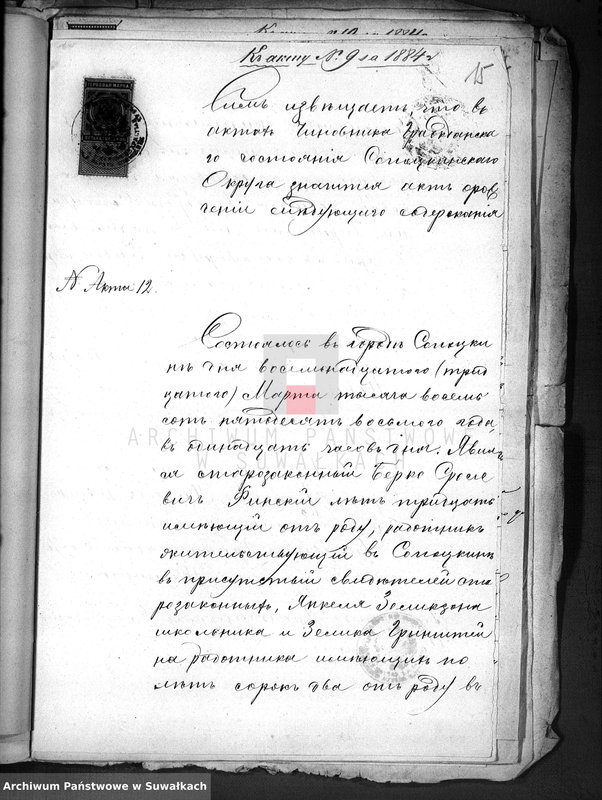 Къ акту № 9 за 1884 г
15
ГЕРБОВАЯ МАРКА
Симъ извѣщаетъ, что въ
актахъ Чиновника Гражданска
го состоянія Сопоцкинскаго
Округа значится актъ о рож
деніи слѣдующаго содержанія
N Акта 12.
Состоялось въ городѣ Сопоцки
нѣ дня восемьнадцатого (трид
цатого) Марта тысяча восемь
сотъ пятьдесятъ восьмого года
въ одинадцать часовъ дня. Явил
ся старозаконный Берко
вичъ Финскій лѣтъ тридцать
имѣющій отъ роду, работникъ
жительствующій въ Сопоцкинѣ
въ присутствіи свидѣтелей ста
розаконныхъ, Янкеля Зеликзона
школьника и Зелика Гринштей
на работника имѣющихъ по
лѣтъ сорокъ два отъ роду въ
ARCHIWUM PAŃSTWOWE
W SUWAŁKACH
Archiwum Państwowe w Suwałkach